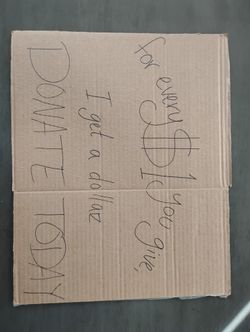 for every $1 you give,
I get a dollar
DONATE TODAY